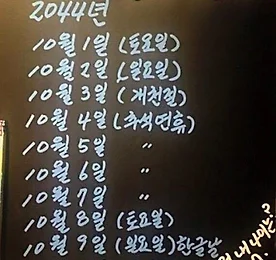 2044년
10월 1일 (토요일)
10월 2일 (일요일)
10월 3일 (개천절)
10월 4일 (추석연휴)
10월 5일 〃
10월 6일 〃
10월 7일 〃
10월 8일 (토요일)
10월 9일 (일요일) 한글날
내 나이는?